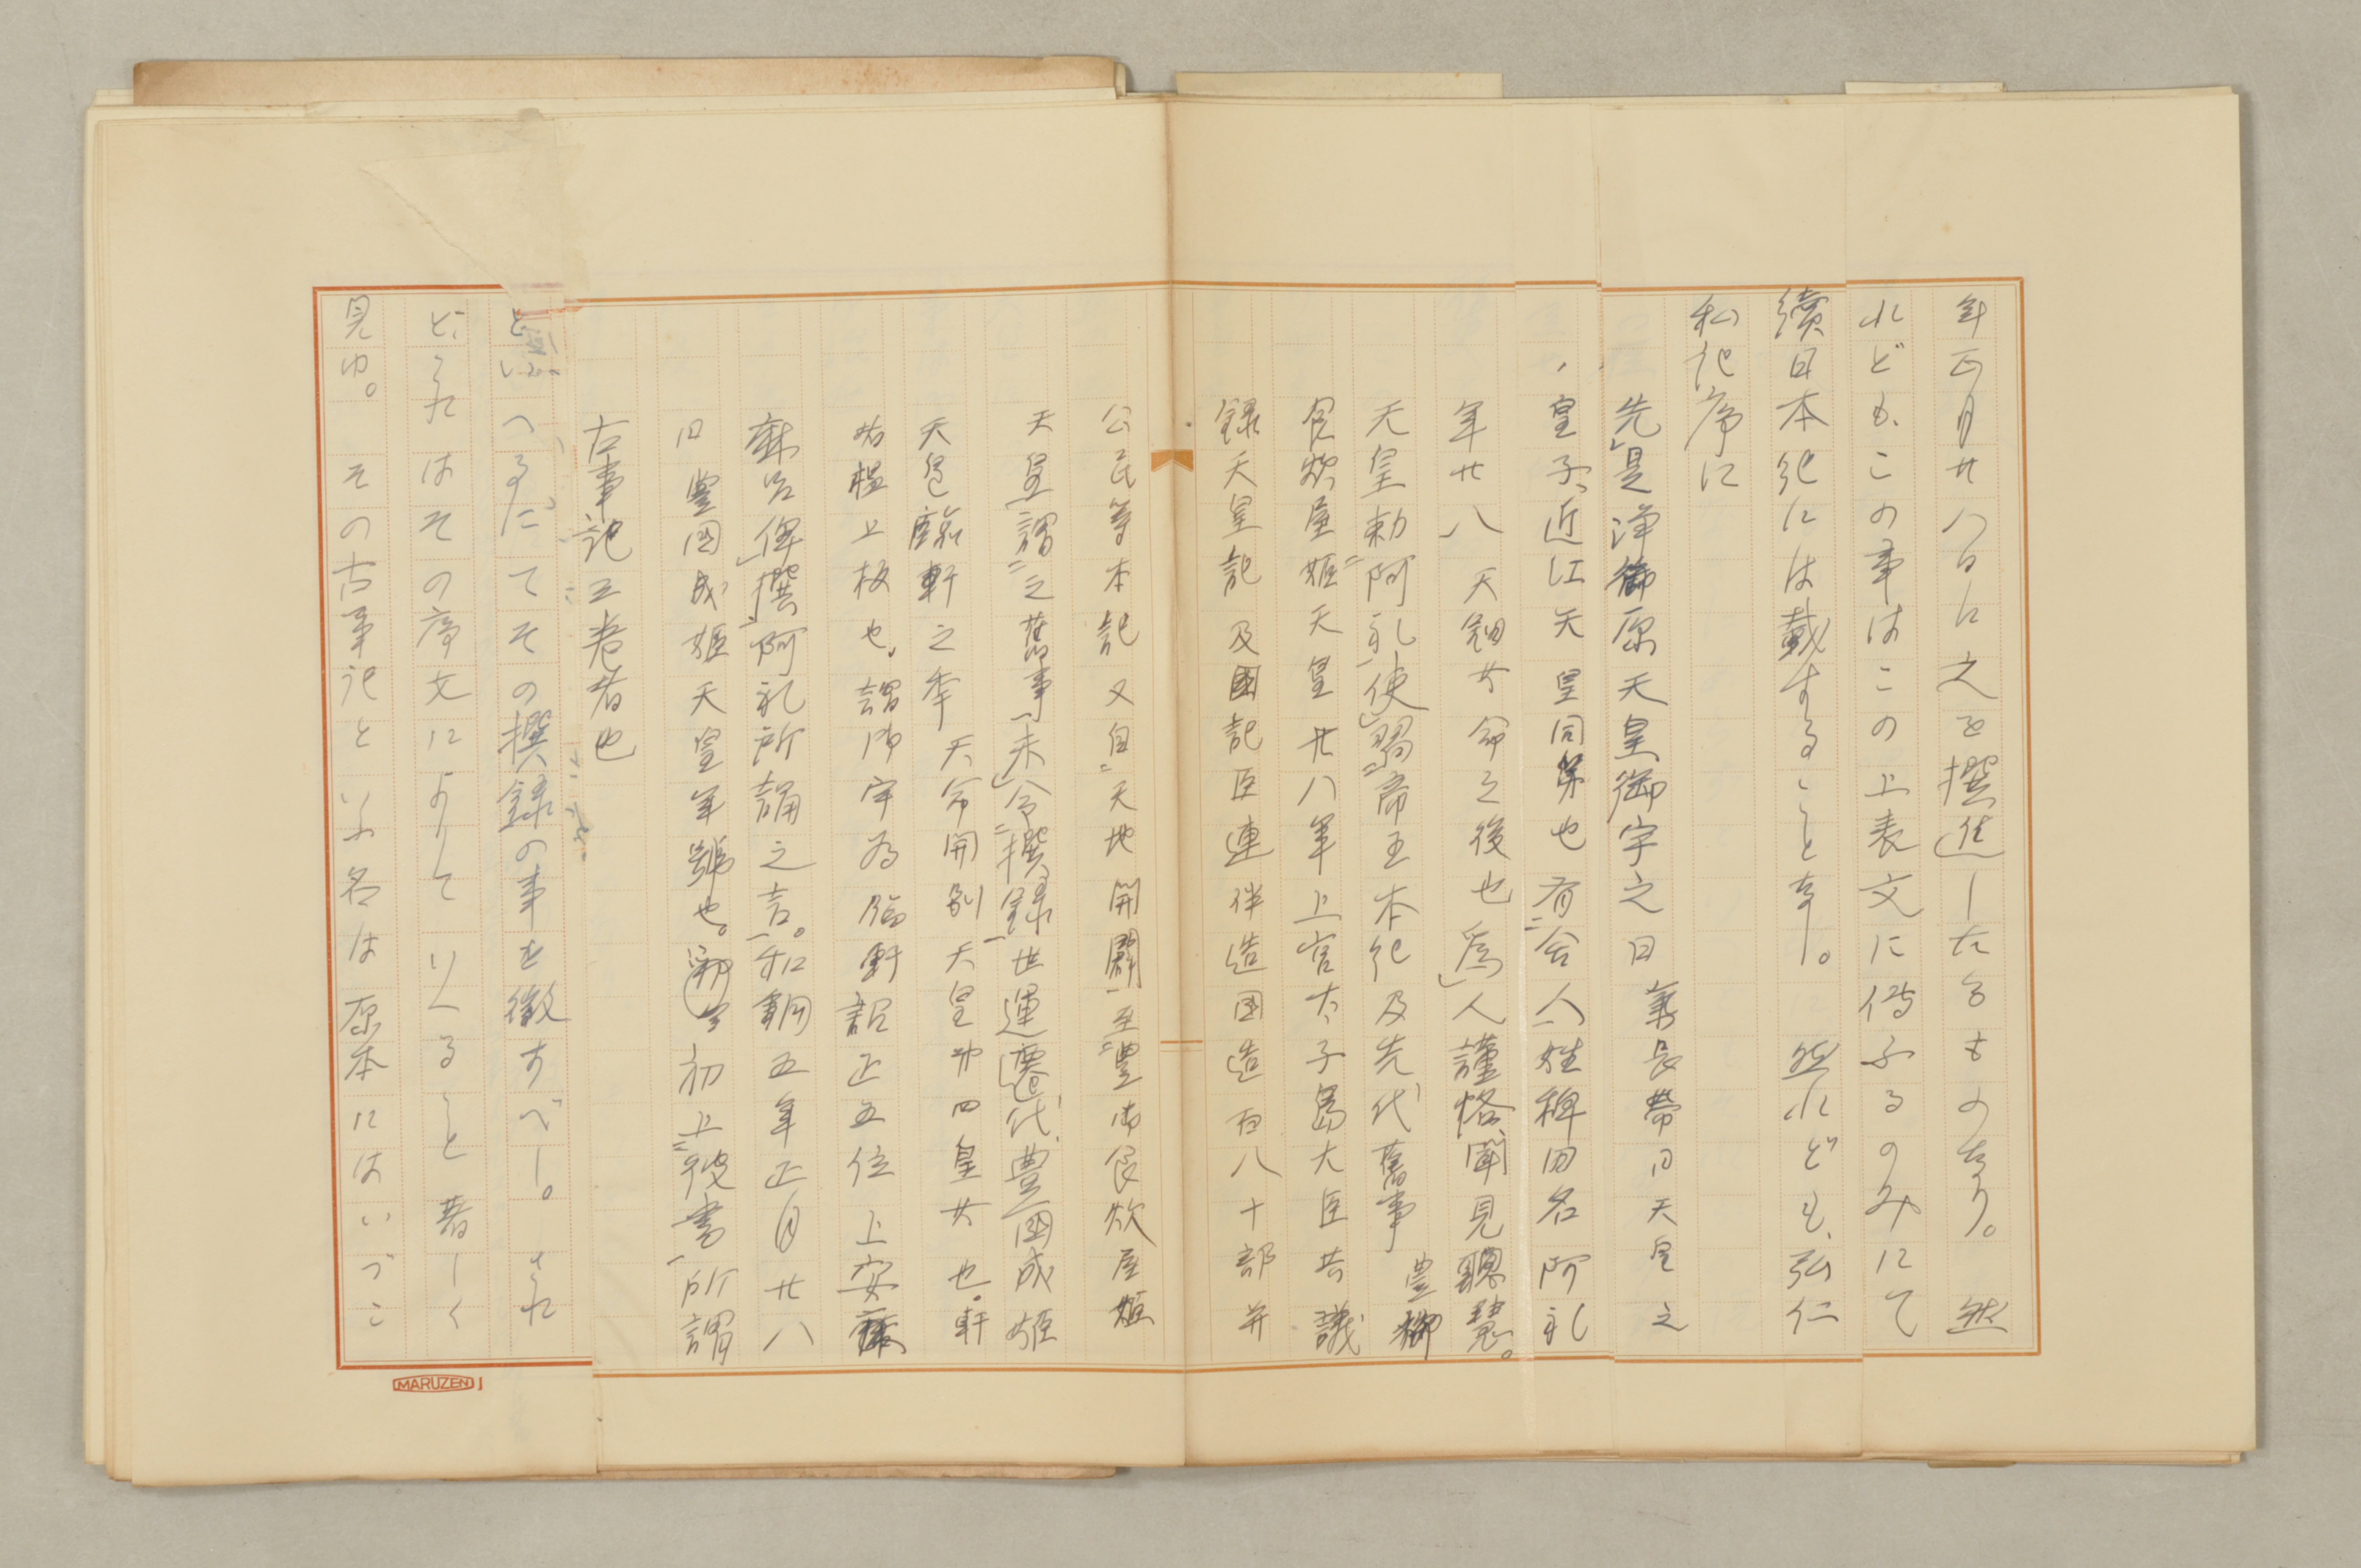 年正月廿八日に之を撰進したるものなり。然
れども、この事はこの上表文に傳ふるのみにて
續日本紀には載することなし。然れども、弘仁
私記序に
先是淨御原天皇御宇之日 氣長帶日天皇之
皇子、近江天皇同弟也 有舍人姓稗田名阿礼
年廿八 天鈿女命之後也 爲人謹恪、聞見聰慧。
天皇勅阿礼使習帝王本紀及先代舊事 豊御
食炊屋姫天皇廿八年上宮太子嶋大臣共議
録天皇記及國記臣連伴造国造百八十部并
公民等本記 又自天地開闢至豊御食炊屋姫
天皇謂之舊事 未令撰録世運遷代豊国成姫
天皇臨軒之季 天命開別天皇第四皇女也。軒
始榲上板也、謂御宇為臨軒 詔正五位上安麻
麻呂俾撰阿礼所誦之言。和銅五年正月廿八
日 豊国成姫天皇年號也。 初上彼書 所謂
古事記三卷者也
といへるにてその撰録の事を徴すべし。され
ど、これはその序文によりていへること著しく
見ゆ。 その古事記といふ名は原本にはいづこ
MARUZEN